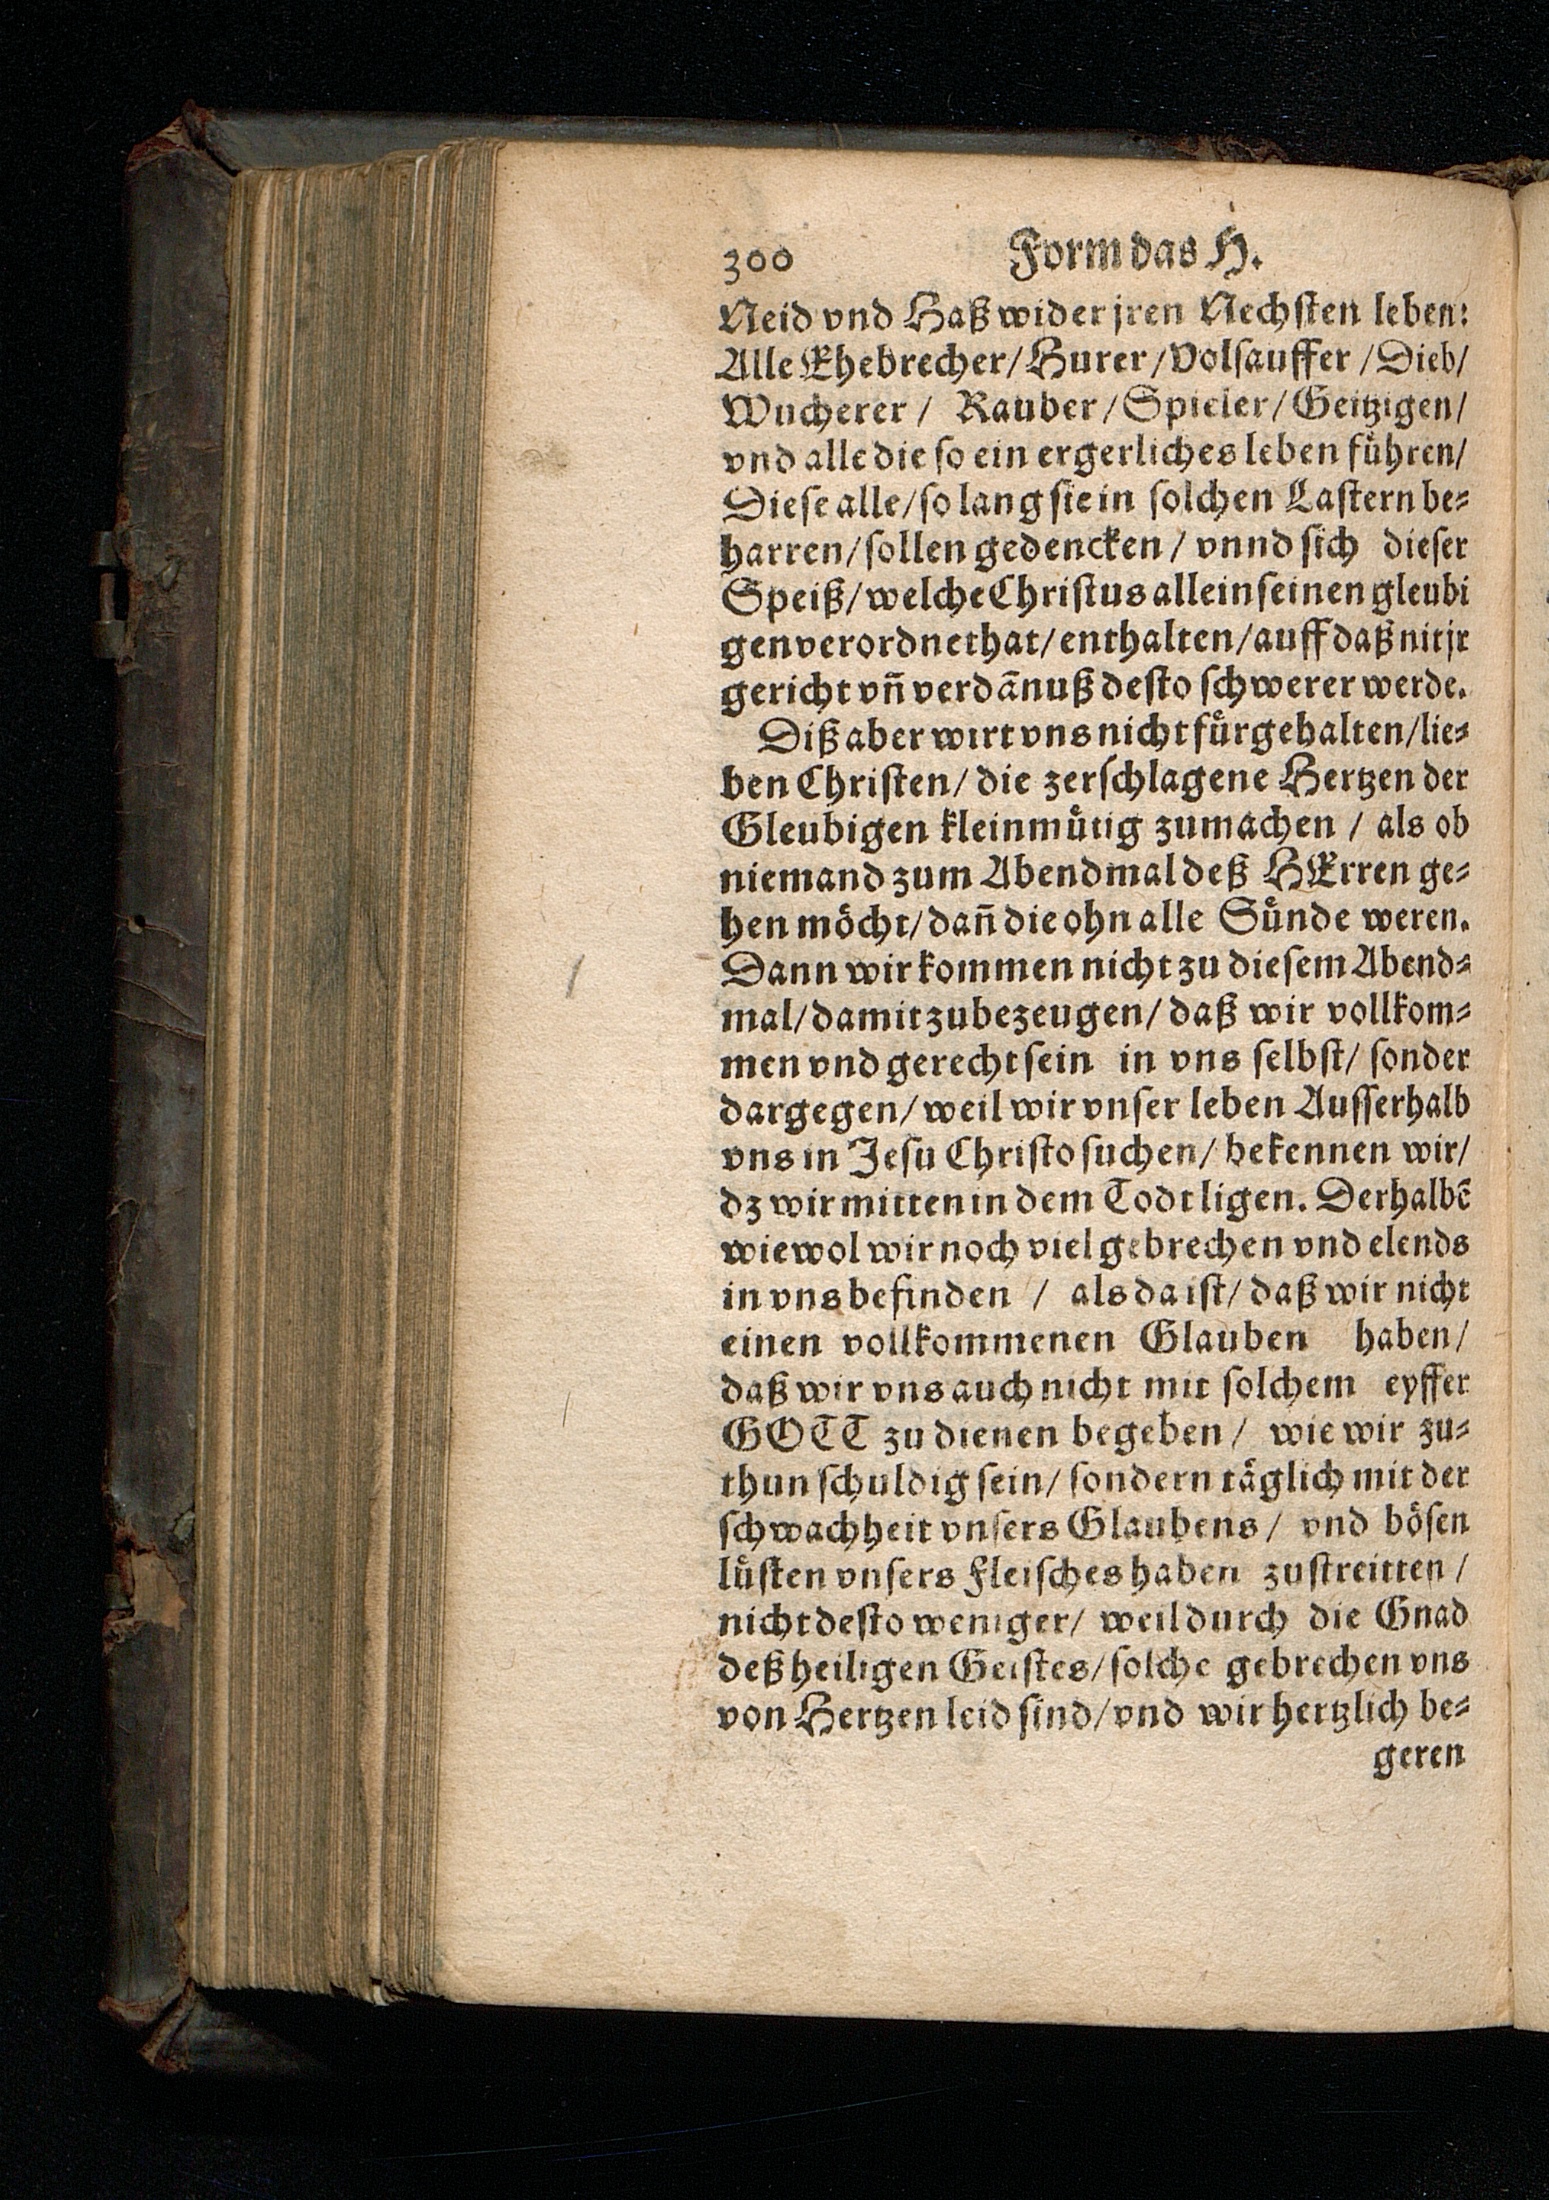 300 Form das H.
Neid vnd Haß wider jren Nechsten leben:
Alle Ehebrecher/ Hurer/ Volsauffer / Dieb/
Wucherer / Rauber/ Spieler/ Geitzigen/
vnd alle die so ein ergerliches leben fuͤhren/
Diese alle/ so lang sie in solchen Lastern be⸗
harren/ sollen gedencken/ vnnd sich dieser
Speiß/ welche Christus allein seinen gleubi
gen verordnet hat/ enthalten/ auff daß nit jr
gericht vñ verdãnuß desto schwerer werde.
Diß aber wirt vns nicht fuͤrgehalten/ lie⸗
ben Christen/ die zerschlagene Hertzen der
Gleubigen kleinmuͤtig zumachen / als ob
niemand zum Abendmal deß HErren ge⸗
hen moͤcht/ dañ die ohn alle Suͤnde weren.
Dann wir kommen nicht zu diesem Abend⸗
mal/ damit zubezeugen/ daß wir vollkom⸗
men vnd gerecht sein in vns selbst/ sonder
dargegen/ weil wir vnser leben Ausserhalb
vns in Jesu Christo suchen/ bekennen wir/
dz wir mitten in dem Todt ligen. Derhalbẽ
wiewol wir noch viel gebrechen vnd elends
in vns befinden / als da ist/ daß wir nicht
einen vollkommenen Glauben haben/
daß wir vns auch nicht mit solchem eyffer
GOTT zu dienen begeben/ wie wir zu⸗
thun schuldig sein/ sondern taͤglich mit der
schwachheit vnsers Glaubens/ vnd boͤsen
luͤsten vnsers Fleisches haben zustreitten/
nicht desto weniger/ weil durch die Gnad
deß heiligen Geistes/ solche gebrechen vns
von Hertzen leid sind/ vnd wir hertzlich be⸗
geren